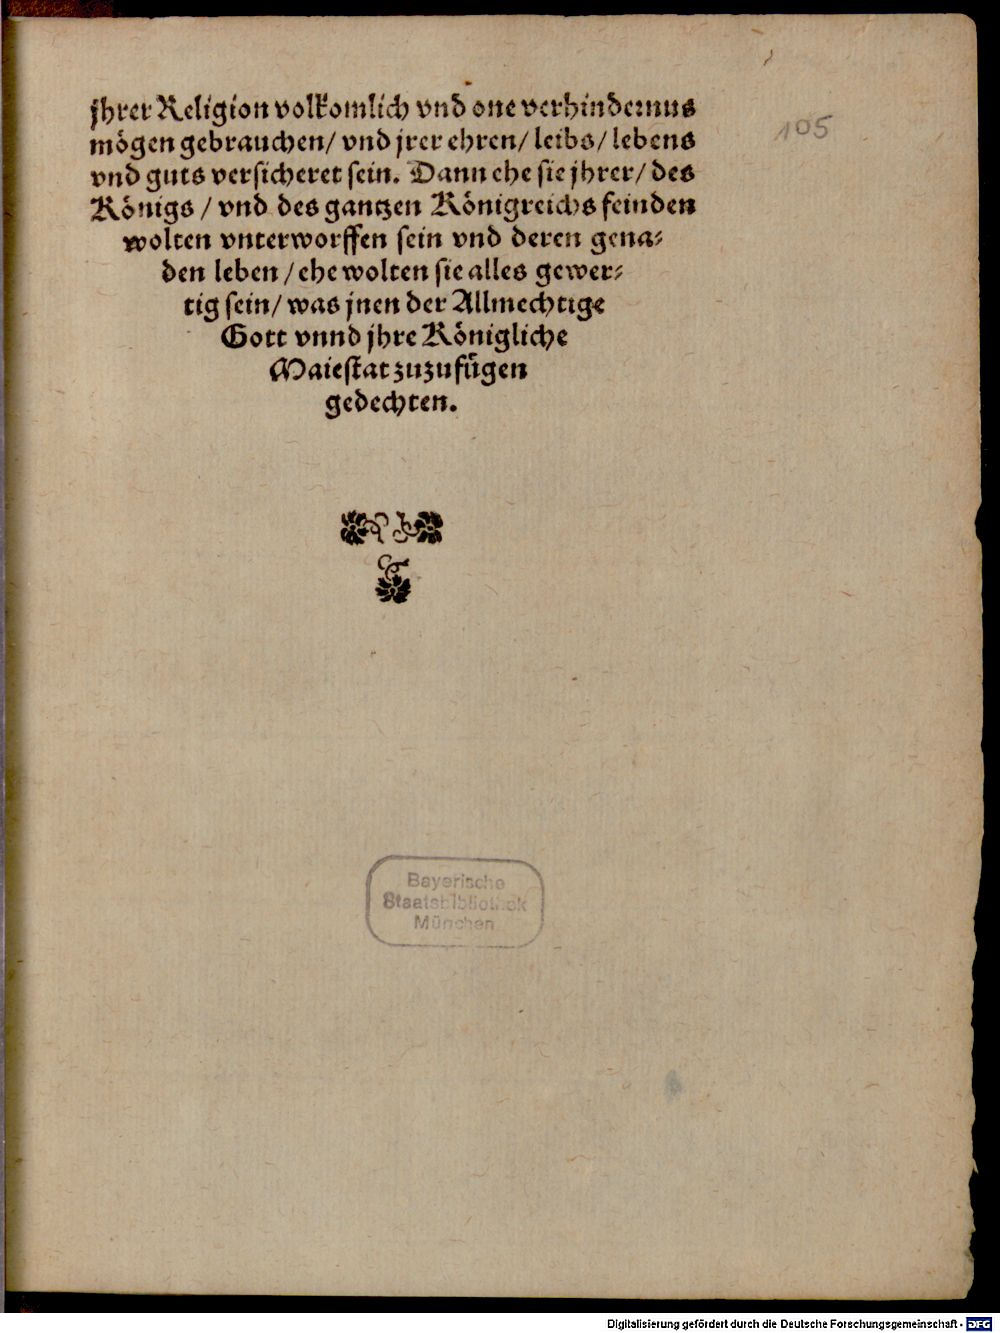 jhrer Religion volkomlich vnd one verhindernus
mögen gebrauchen/ vnd jrer ehren/ leibs/ lebens
vnd guts versicheret sein. Dann ehe sie jhrer/ des
Königs / vnd des gantzen Königreichs feinden
wolten vnterworffen sein vnd deren gena⸗
den leben / ehe wolten sie alles gewer⸗
tig sein/ was jnen der Allmechtige
Gott vnnd jhre Königliche
Maiestat zuzufügen
gedechten.
105
Bayerische
Staatsbibliothek
München
Digitalisierung gefördert durch die Deutsche Forschungsgemeinschaft - DFG